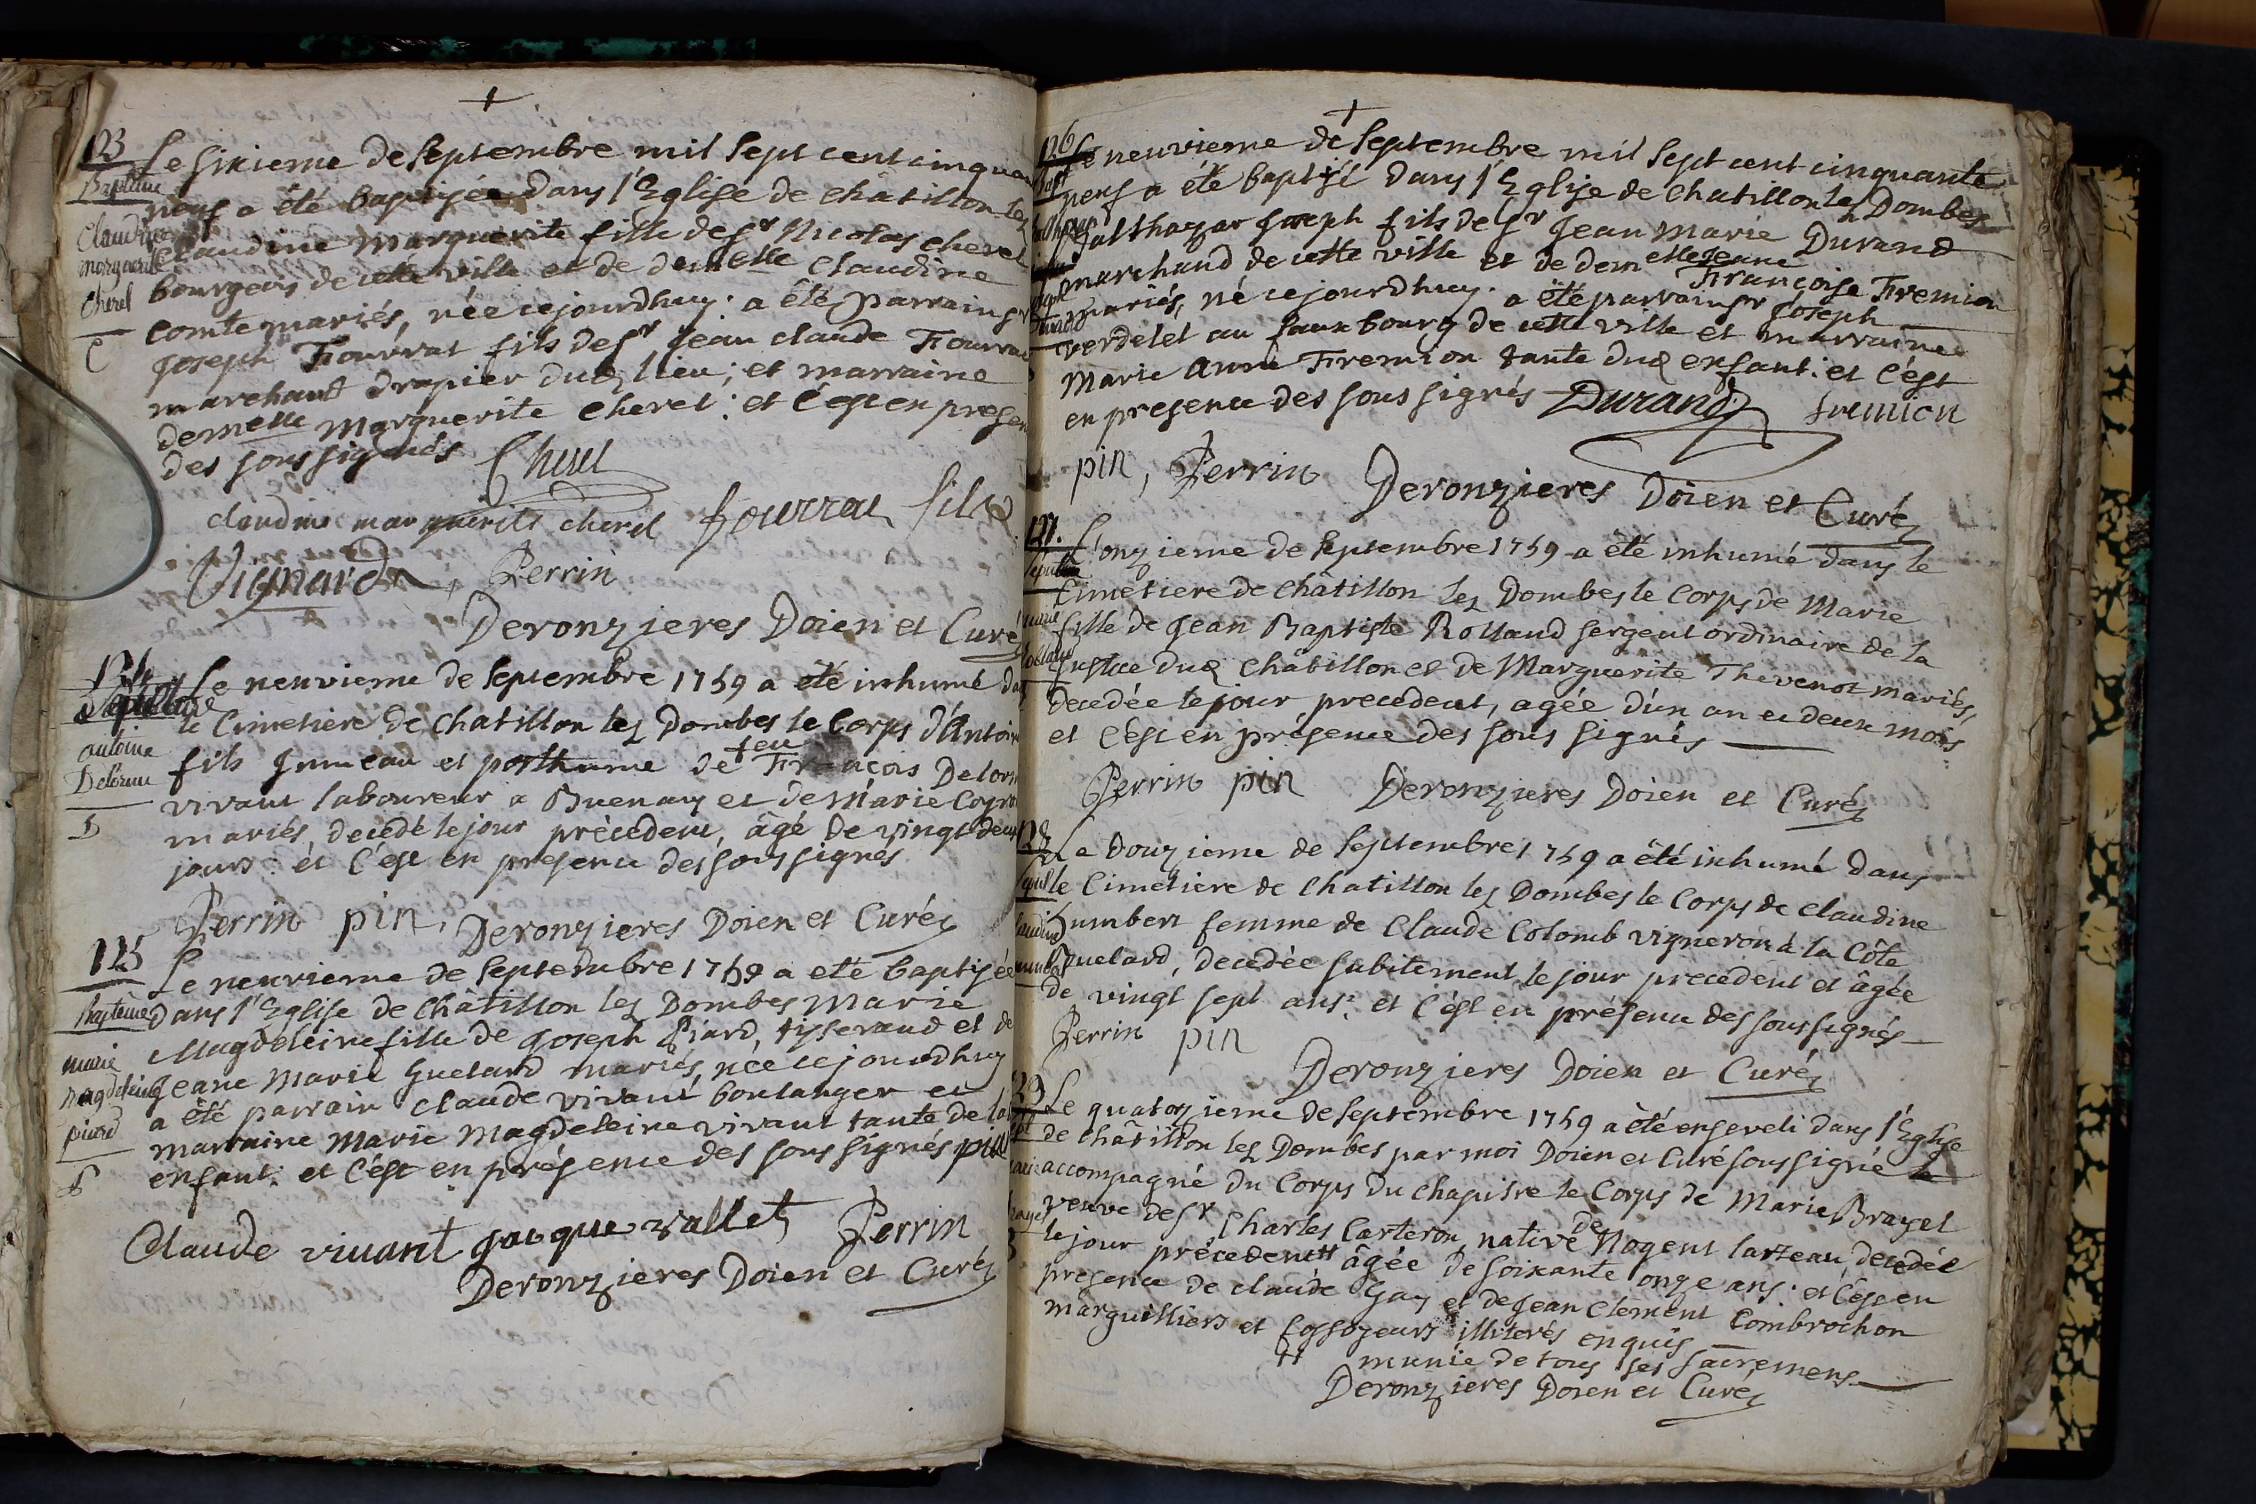 123
Baptême
Claudine
marguerite
Cherel
C
Le sixieme de septembre mil sept cent cinquan
neuf a été baptisée dans l'Eglise de châtillon lez
Claudine marguerite fille de sr Nicolas cherel
bourgeois de cette ville et de demelle Claudine
comte mariés, née cejourdhuy. a été parrain sr
Joseph Fourrat fils de sr Jean claude Fourrat
marchand drapier dud lieu; et marraine
demelle Marguerite Cherel: et c'est en presen
des soussignés Cherel
claudine marguerite cherel fourrat fils
Vignard, Perrin
Deronzieres Doien et Curé
124
Sepulture
antoine
Delorme
Le neuvieme de septembre 1759 a été inhumé da
le Cimetiere de chatillon lez Dombes le Corps d'Antoin
fils Jumeau et posthume de feu François Delorm
vivant laboureur a Buenay et de Marie
mariés, decedé le jour précedent, âgé de vingt deux
jours: et c'est en presence des soussignés
Perrin pin, Deronzieres Doien et Curé
125
Baptême
marie
magdeleine
piard
Le neuvieme de septembre 1759 a eté baptisée
dans l'Eglise de Châtillon lez Dombes Marie
Magdeleine fille de Joseph Piard, tisserand et de
Jeane Marie Guelard mariés, née cejourdhuy
a été parrain Claude vivant boulanger et
marraine Marie Magdeleine vivant tante de la
enfant: et c'est en présence des soussignés
Claude vivant jacque vallet Perrin
Deronzieres Doien et Curé
126
Le neuvieme de septembre mil sept cent cinquante
neuf a été baptisé dans l'Eglise de chatillon lez Dombes
Balthazar Joseph fils de sr Jean Marie Durand
marchand de cette ville et de demelle Jeane Françoise Fremion
mariés, né cejourdhuy. a été parrain sr Joseph
verdelet au fauxbourg de cette ville et marraine
Marie Anne Fremion tante dud enfant: et c'est
en presence des soussignés Durand fremion
pin, Perrin Deronzieres Doien et Curé
127.
Sepulture
marie
Rolland
L'onzieme de septembre 1759 a été inhumé dans le
Cimetiere de châtillon lez Dombes le Corps de Marie
fille de Jean Baptiste Rolland sergent ordinaire de la
Justice dud Châtillon et de Marguerite Thevenot mariés,
decedée le jour precedent, agée d'un an et deux mois
et c'est en présence des sous signés
Perrin pin Deronzieres Doien et Curé
128
Le Douzieme de septembre 1759 a été inhumé dans
le Cimetiere de Chatillon lez Dombes le Corps de Claudine
humbert femme de Claude Colomb vigneron à la Côte
Quelard, decedée subitement le jour precedent et âgée
de vingt sept ans: et c'est en présence des soussignés
Perrin pin
Deronzieres Doien et Curé
129
Le quatorzieme de septembre 1759 a été enseveli dans l'Eglise
de châtillon lez Dombes par moi Doien et Curé soussigné
accompagné du Corps du chapitre le Corps de Marie Brayet
veuve de sr Charles Carteron native de Nogent larteau decedée
le jour précedent ++ âgée de soixante onze ans: et c'est en
presence de claude Gay et de Jean Clement Combrochon
marguilliers et fossoyeurs illiterés enquis
++ munie de tous ses sacremens
Deronzieres Doien et Curé